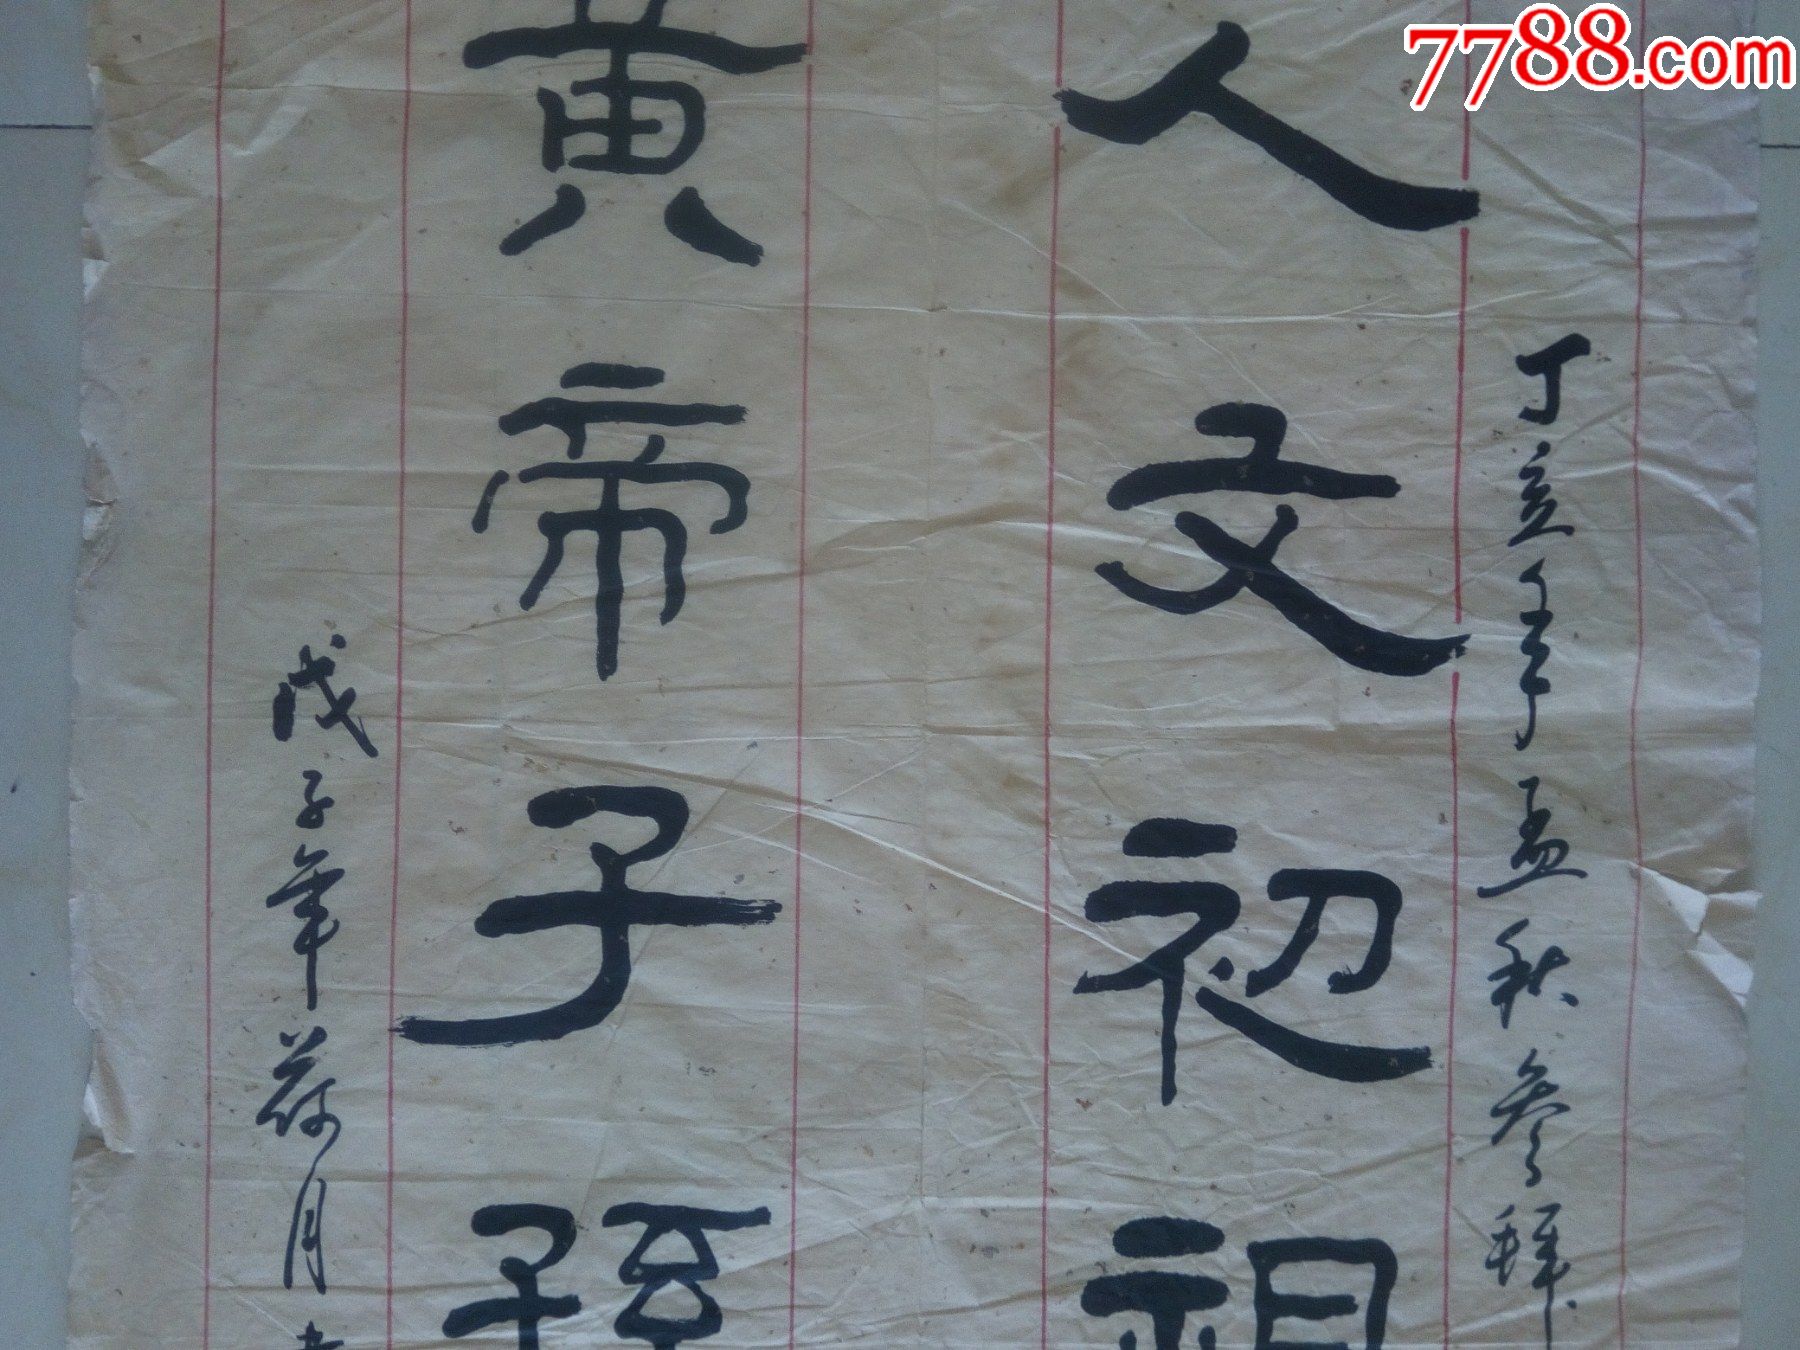 7788.com
丁亥年孟秋参拜
人文初祖
黄帝子孫
戊子年荷月